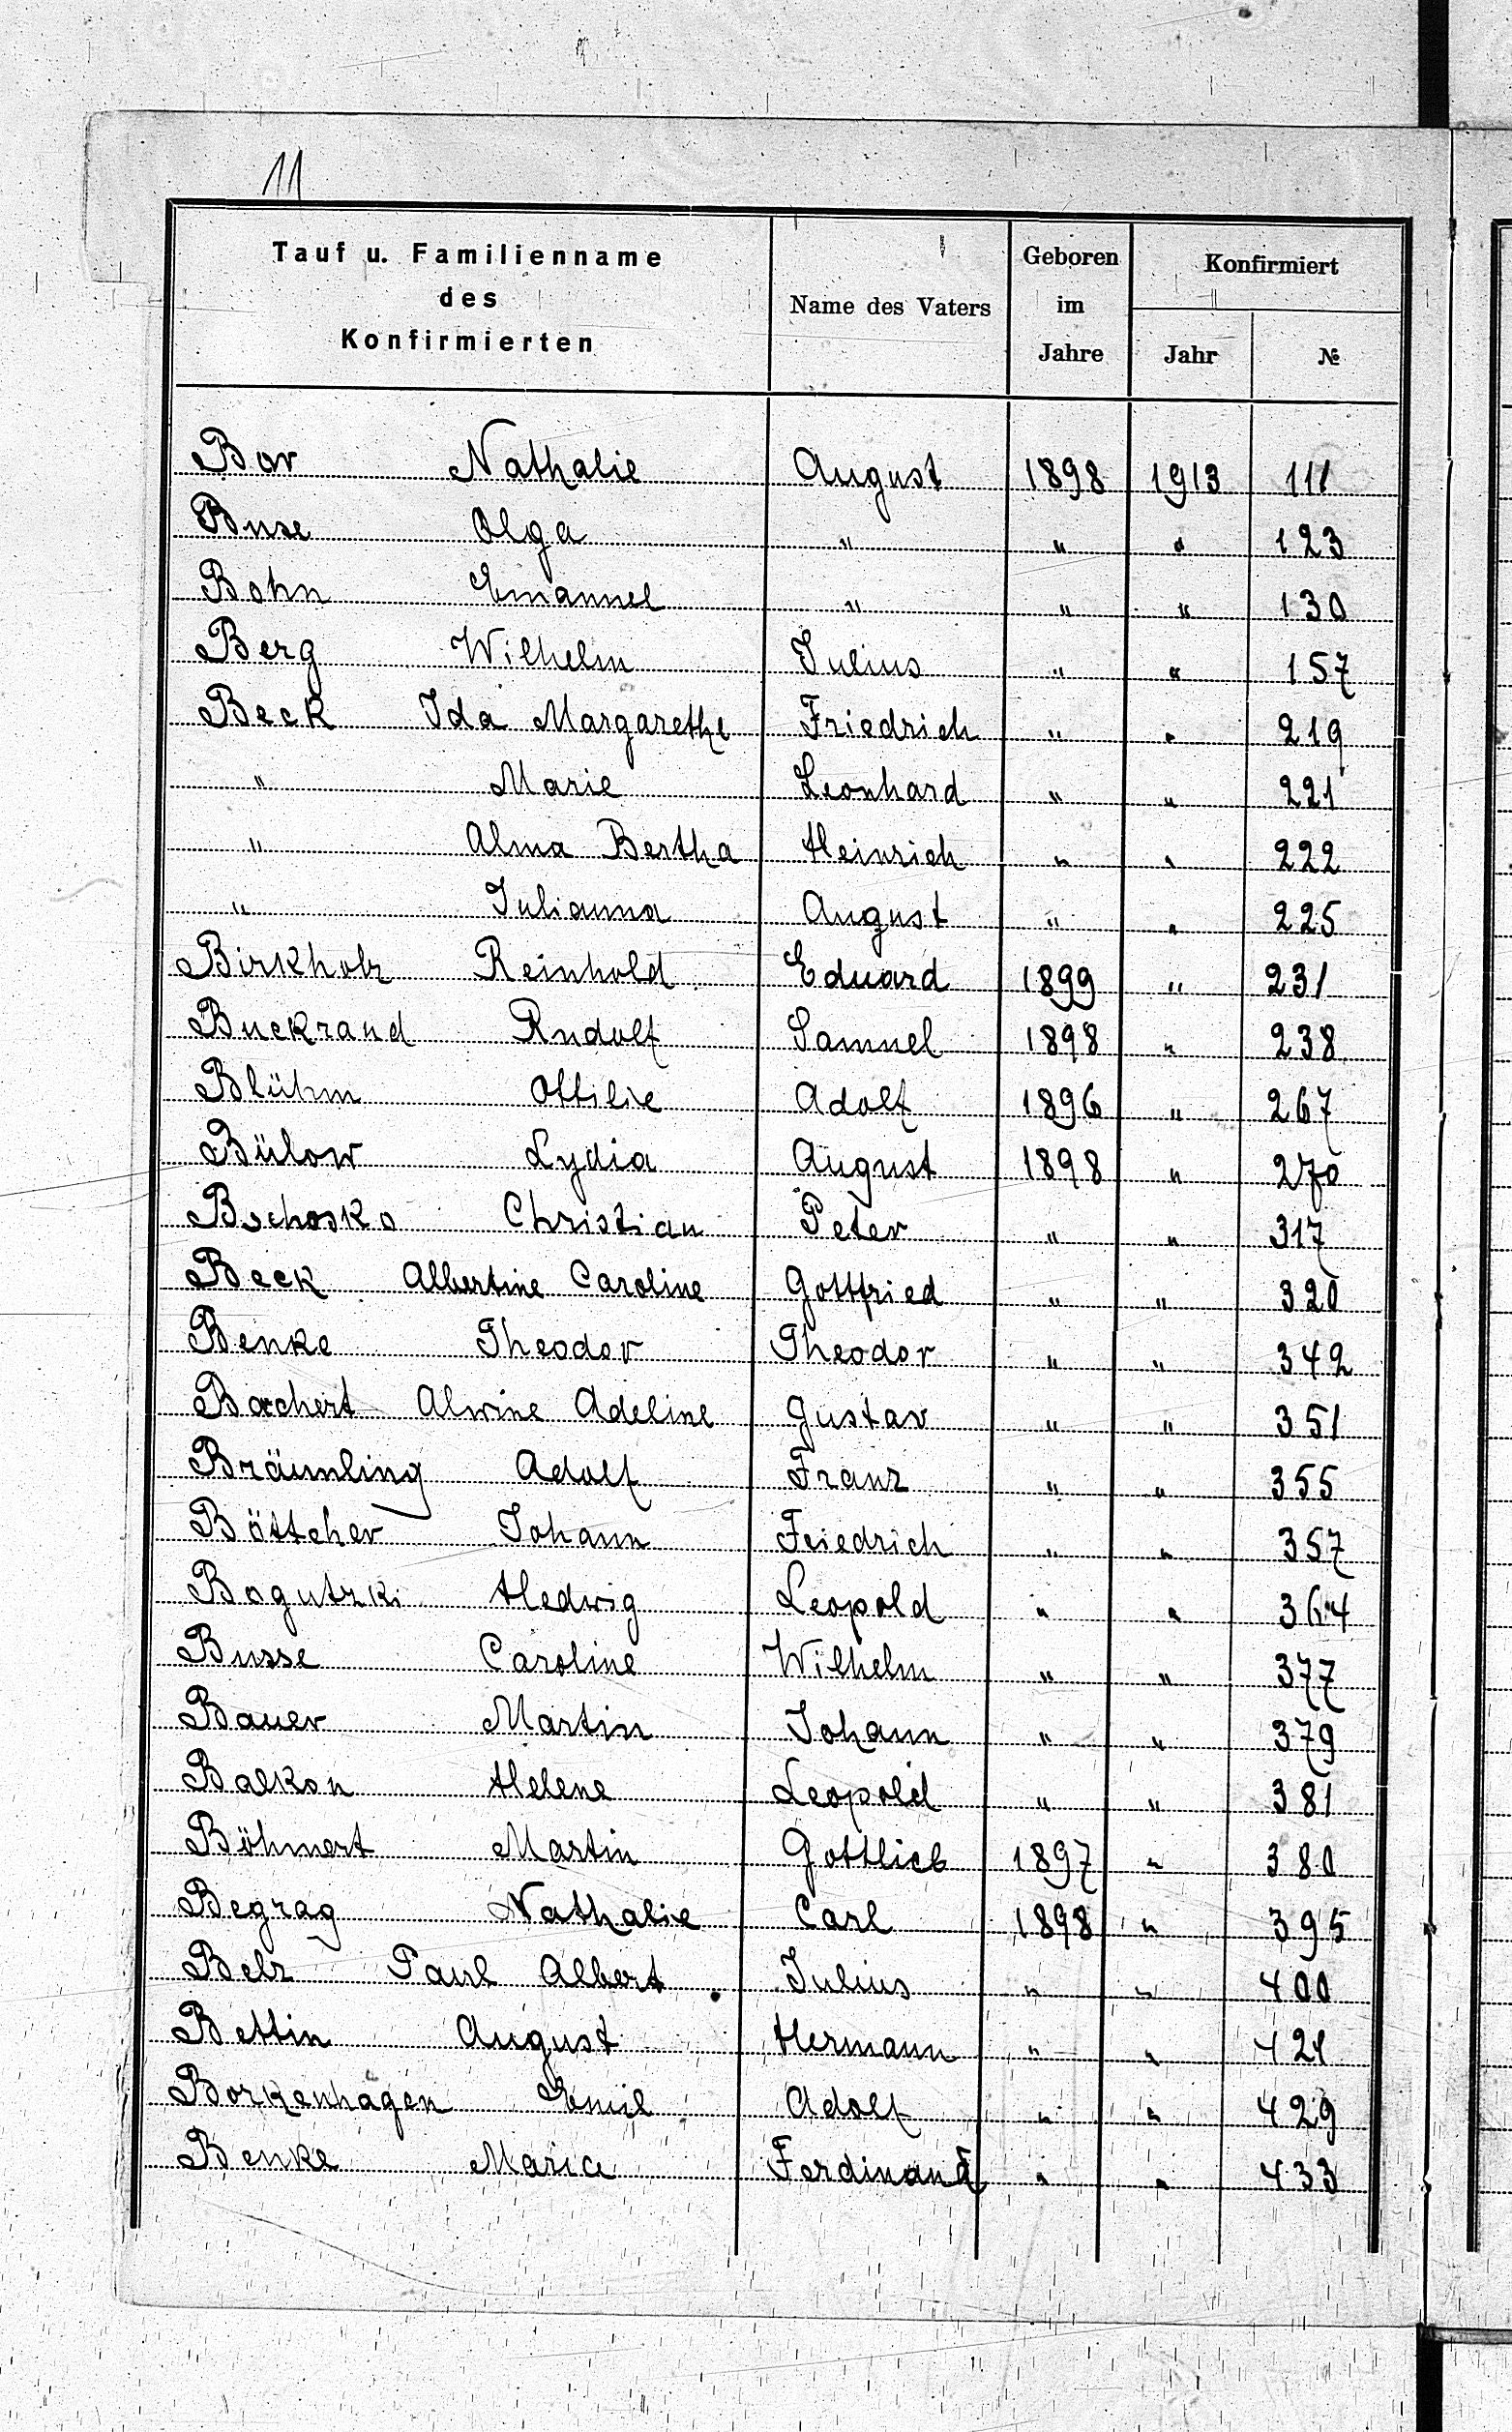 11
Tauf u. Familienname des Konfirmierten | Name des Vaters | Geboren im Jahre | Konfirmiert Jahr | №
Bor Nathalie August 1898 1913 111
Buse Olga " " " 123
Bohn Emanuel " " " 130
Berg Wilhelm Julius " " 157
Beck Ida Margarethe Friedrich " " 219
" Marie Leonhard " " 221
" Alma Bertha Heinrich " " 222
" Julianna August " " 225
Birkholz Reinhold Eduard 1899 " 231
Buckrand Rudolf Samuel 1898 " 238
Blühm Ottilie Adolf 1896 " 267
Bülow Lydia August 1898 " 270
Christian Peter " " 317
Beck Albertine Caroline Gottfried " " 320
Benke Theodor Theodor " " 342
Bachert Alwine Adeline Gustav " " 351
Bräumling Adolf Franz " " 355
Böttcher Johann Friedrich " " 357
Bogutzki Hedwig Leopold " " 364
Busse Caroline Wilhelm " " 377
Bauer Martin Johann " " 379
Balkon Helene Leopold " " 381
Böhmert Martin Gottlieb 1897 " 380
Begrag Nathalie Carl 1898 " 395
Belz Paul Albert Julius " " 400
Bettin August Hermann " " 421
Borkenhagen Emil Adolf " " 429
Benke Maria Ferdinand " " 433